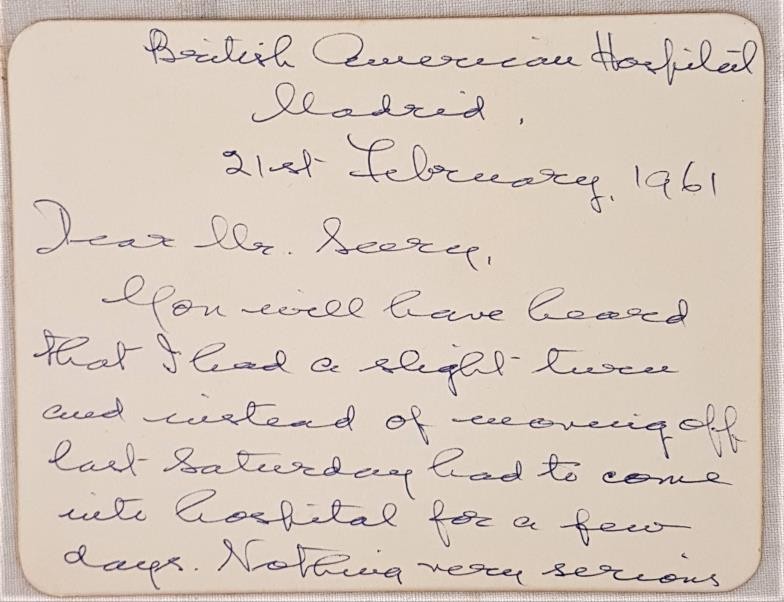 British American Hospital
Madrid,
21st February, 1961
Dear Mr. Seery,
You will have heard
that I had a slight turn
and instead of moving off
last Saturday had to come
into hospital for a few
days. Nothing very serious